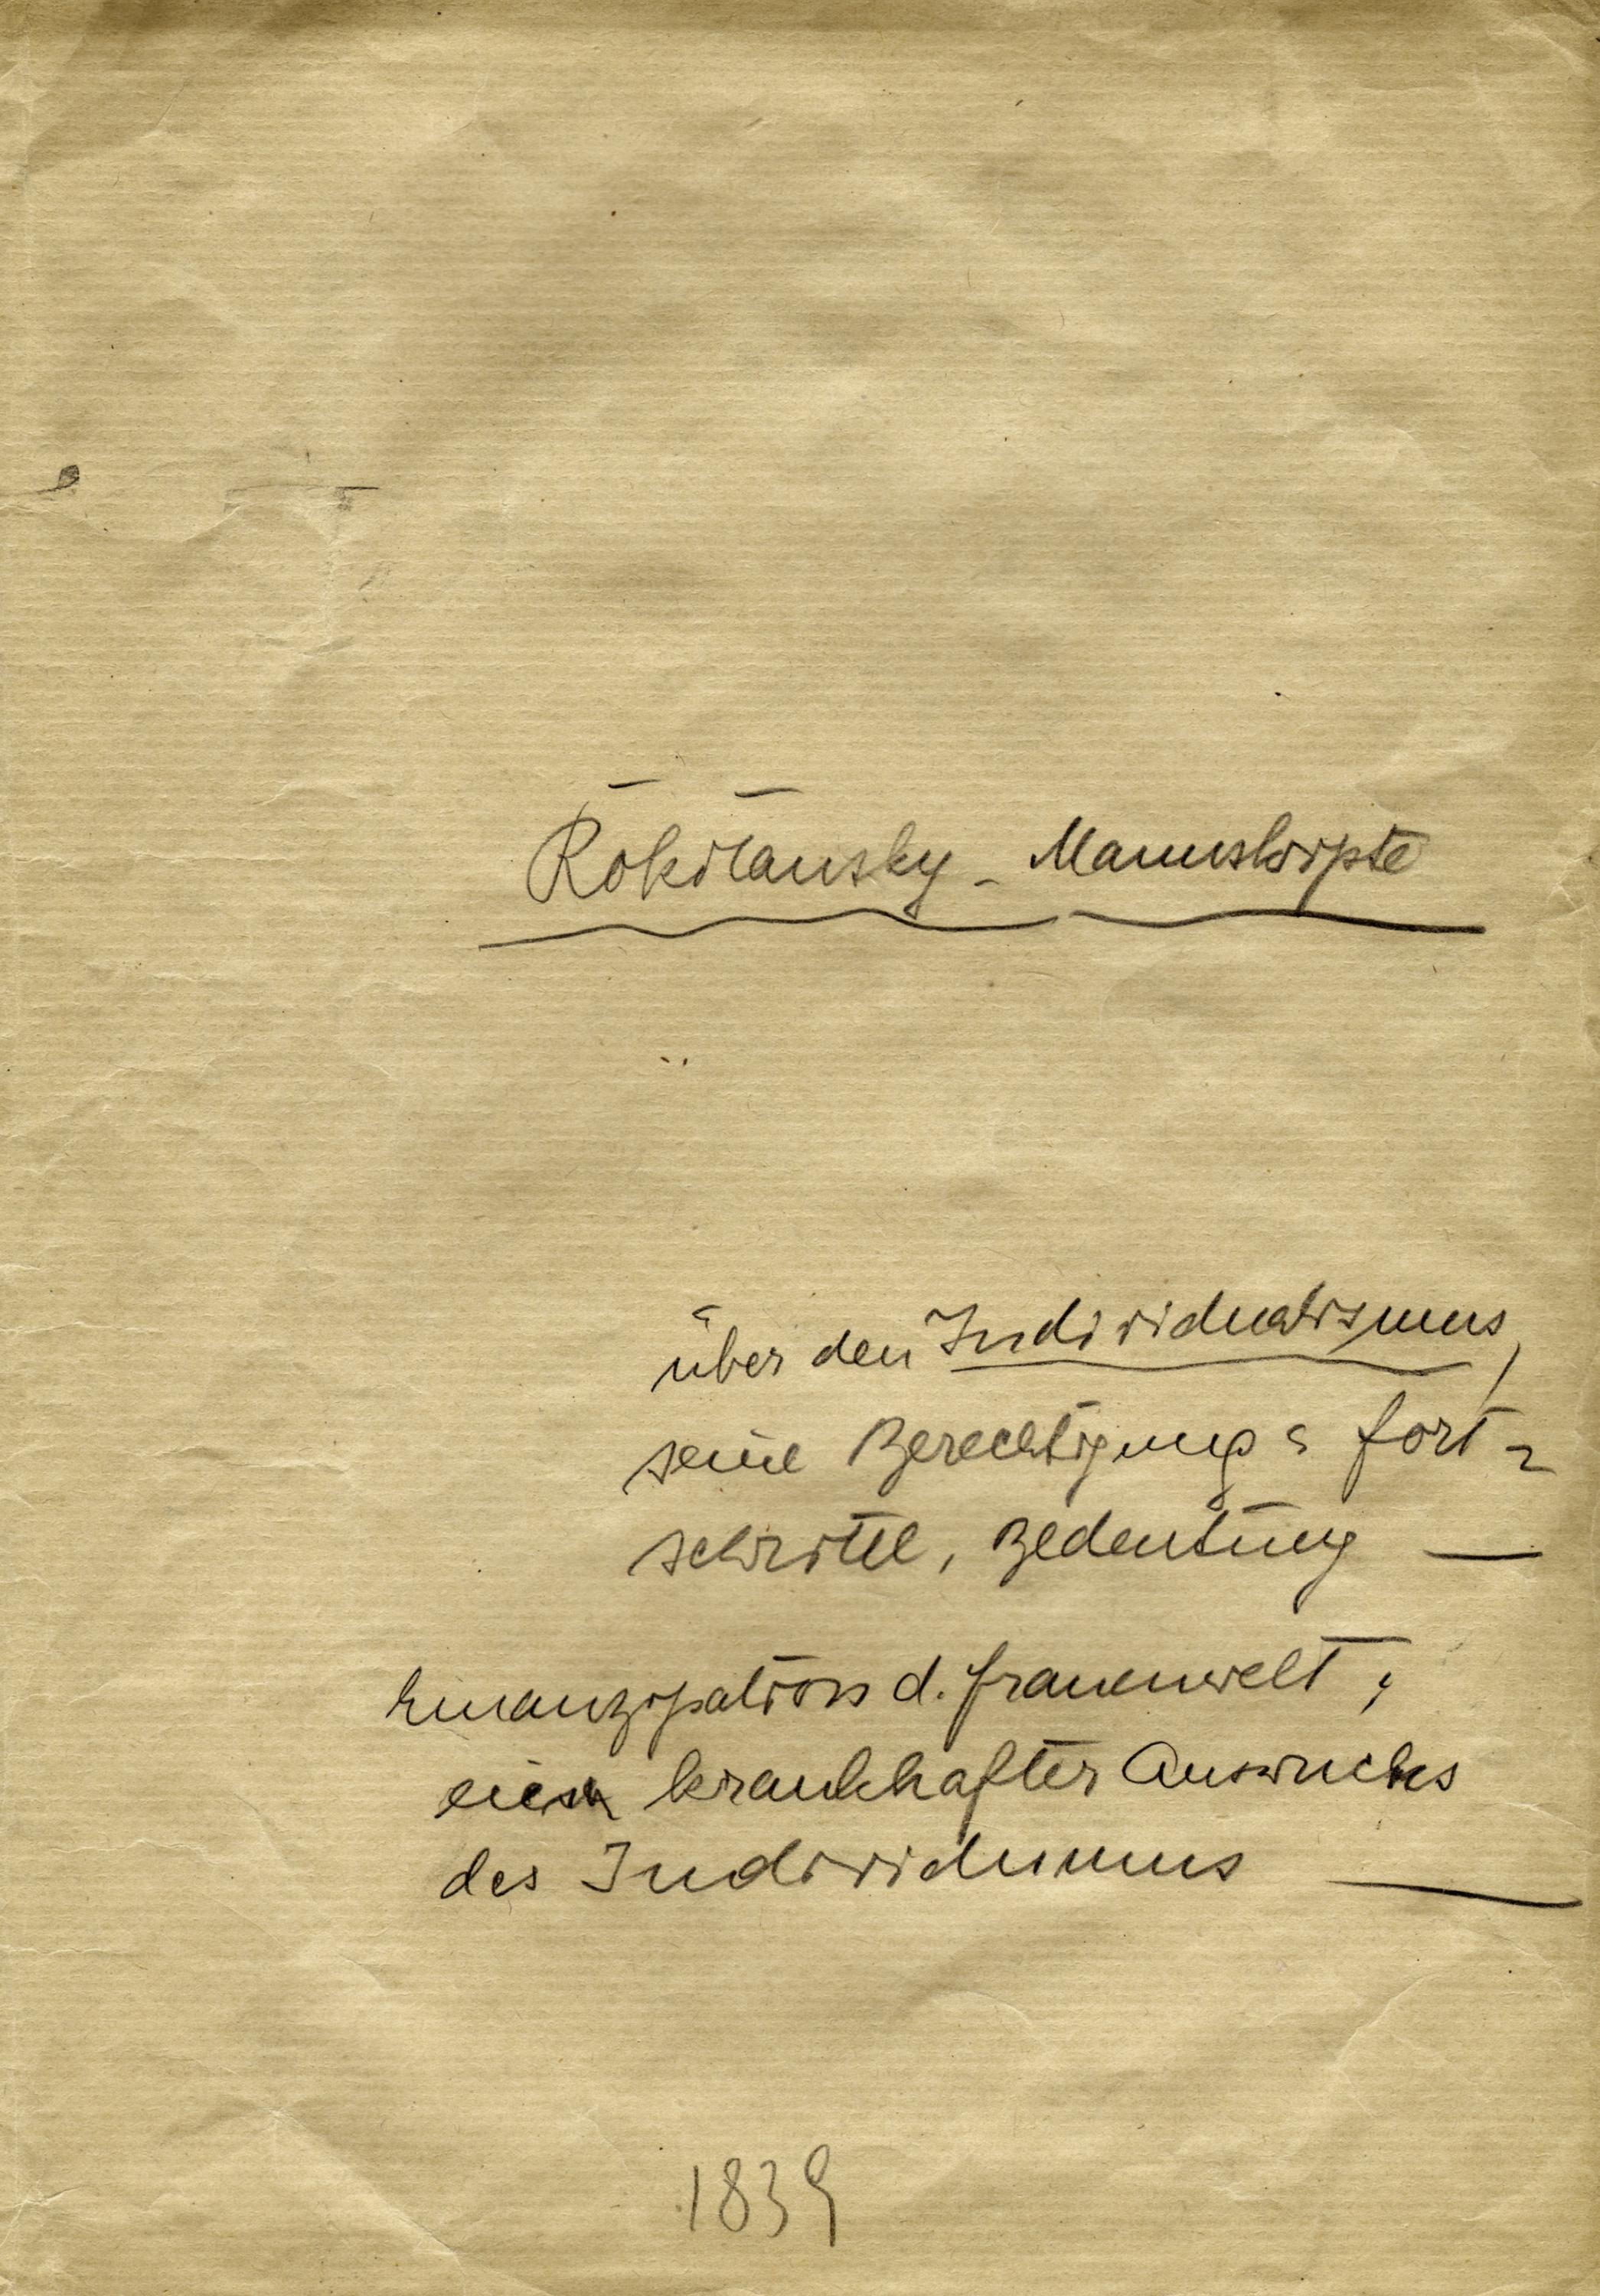 Rokitansky - Manuskripte
über den Individualismus,
seine Berechtigung & Fort-
schritte, Bedeutung —
Emanzipation d. Frauenwelt,
ein krankhafter Auswuchs
des Individuums —
1839